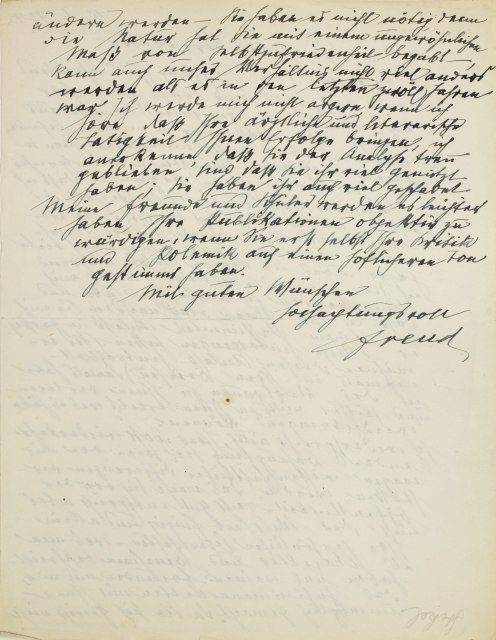 ändern werden – Sie haben es nicht nötig denn
die Natur hat Sie mit einem ungewöhnlichen
Maß von Selbstzufriedenheit begabt –
kann auch unser Verhältnis nicht viel anders
werden als es in den letzten zwölf Jahren
war. Ich werde mich nicht ärgern wenn ich
höre daß Ihre ärztliche und literarische
Tätigkeit Ihnen Erfolge bringen, ich
anerkenne, daß Sie der Analyse treu
geblieben sind daß Sie ihr viel genützt
haben; Sie haben ihr auch viel geschadet
Meine Freunde und Schüler werden es leichter
haben Ihre Publikationen objektiv zu
würdigen, wenn Sie erst selbst Ihre Kritik
und Polemik auf einen höflicheren Ton
gestimmt haben.
Mit guten Wünschen
hochachtungsvoll
Freud